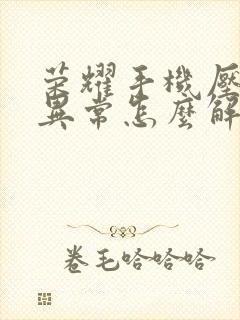 荣耀手機壓
異常怎麼解
卷毛哈哈哈